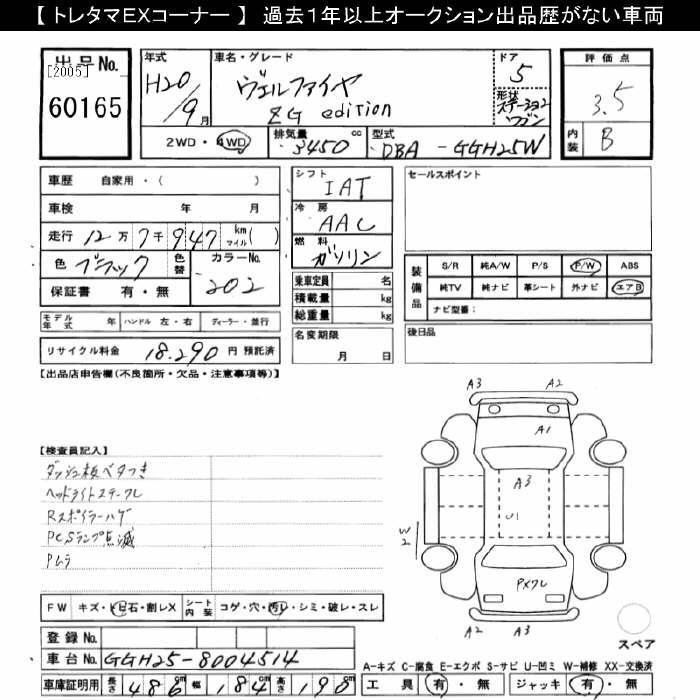 【 トレタマEXコーナー 】 過去1年以上オークション出品歴がない車両
出品No. [2005] 60165
年式 H20/9月
車名・グレード ヴェルファイヤ ZG edition
ドア 5
形状 ステーションワゴン
評価点 3.5
内装 B
2WD・4WD
排気量 3450 cc
型式 DBA - GGH25W
車歴 自家用・( )
車検 年 月
走行 12万7千947 km マイル ( )
色 ブラック 色替 カラーNo. 202
保証書 有・無
モデル年式 年 ハンドル 左・右 ディーラー・並行
リサイクル料金 18.290 円 預託済
シフト IAT
冷房 AAC
燃料 ガソリン
乗車定員 名
積載量 kg
総重量 kg
名変期限 月 日
セールスポイント
装備品 S/R 純A/W P/S P/W ABS
純TV 純ナビ 革シート 外ナビ エアB
ナビ型番：
後日品
【出品店申告欄(不良箇所・欠品・注意事項等)】
【検査員記入】
ダッシュ板ベタつき
ヘッドライトステークレ
Rスポイラーハゲ
PCSランプ点滅
Pムラ
A3 A2
A1
A3
U1
W2
PXワレ
A2 A3
スペア
FW キズ・トビ石・割レX シート内装 コゲ・穴・汚レ・シミ・破レ・スレ
登録No.
車台No. GGH25-8004514
車庫証明用 長さ 486cm 幅 184cm 高さ 190cm
A-キズ C-腐食 E-エクボ S-サビ U-凹ミ W-補修 XX-交換済
工具 有・無 ジャッキ 有・無